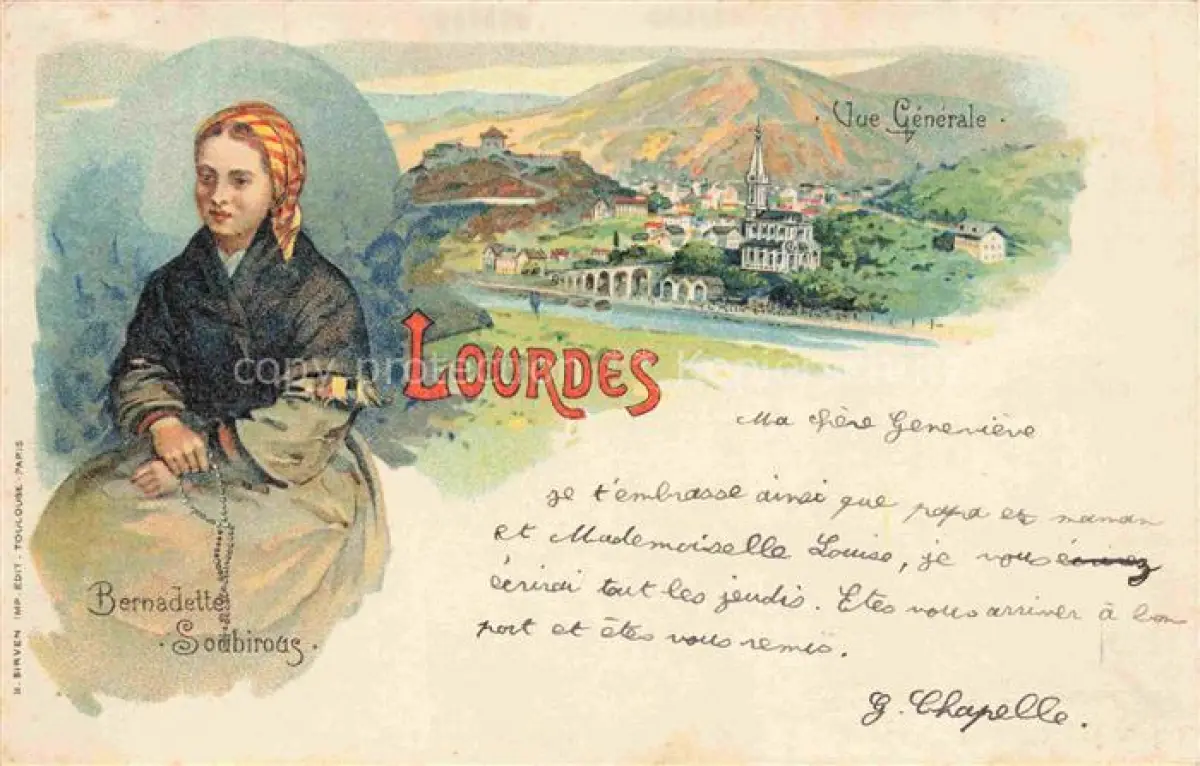 · Vue Générale ·
LOURDES
Ma chère Geneviève
je t'embrasse ainsi que papa et maman
et Mademoiselle Louise, je vous
écrirai tout les jeudis. Etes vous arriver à bon
port et êtes vous remis.
G. Chapelle.
Bernadette
· Soubirous ·
B. SIRVEN IMP. EDIT - TOULOUSE - PARIS
copy protection